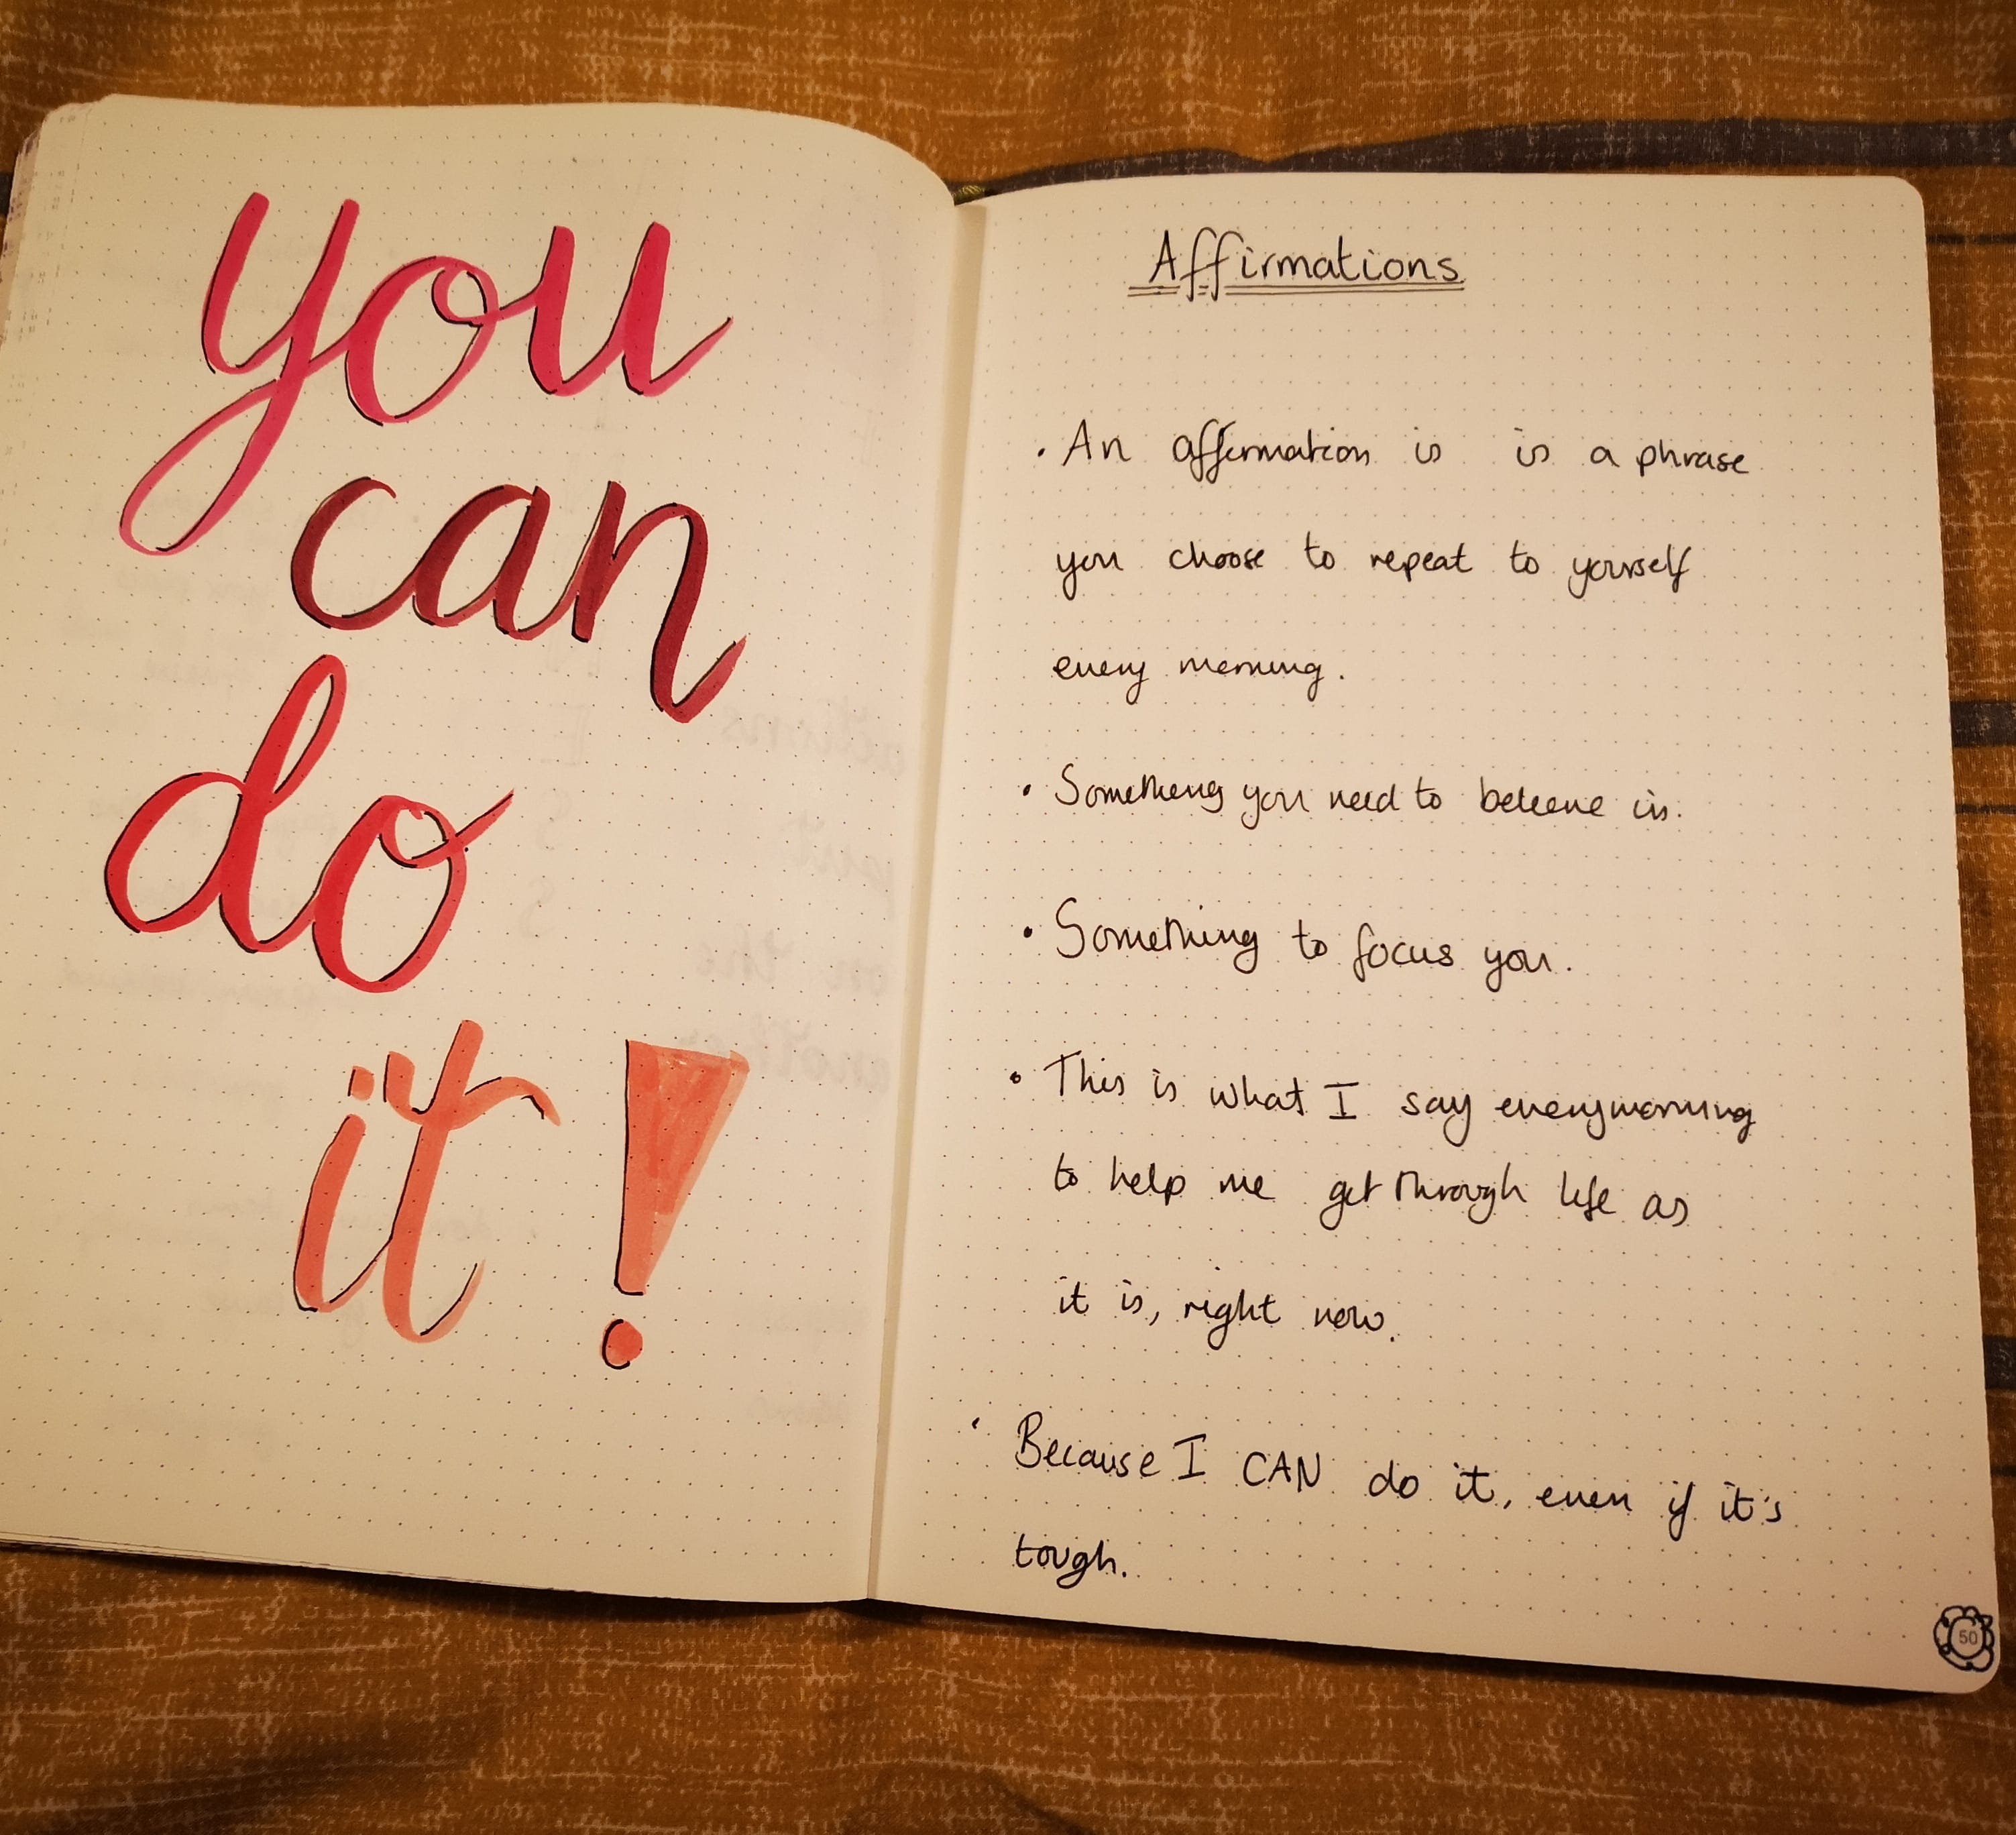 you
can
do
it!
Affirmations
• An affirmation is is a phrase
you choose to repeat to yourself
every morning.
• Something you need to believe in.
• Something to focus you.
• This is what I say every morning
to help me get through life as
it is, right now.
• Because I CAN do it, even if it's
tough.
50